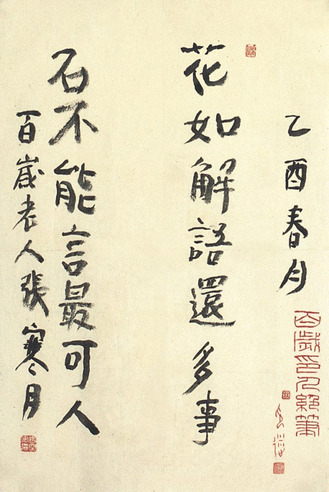 乙酉春月
花如解語還多事
石不能言最可人
百歲老人張寒月
百歲印人絕筆